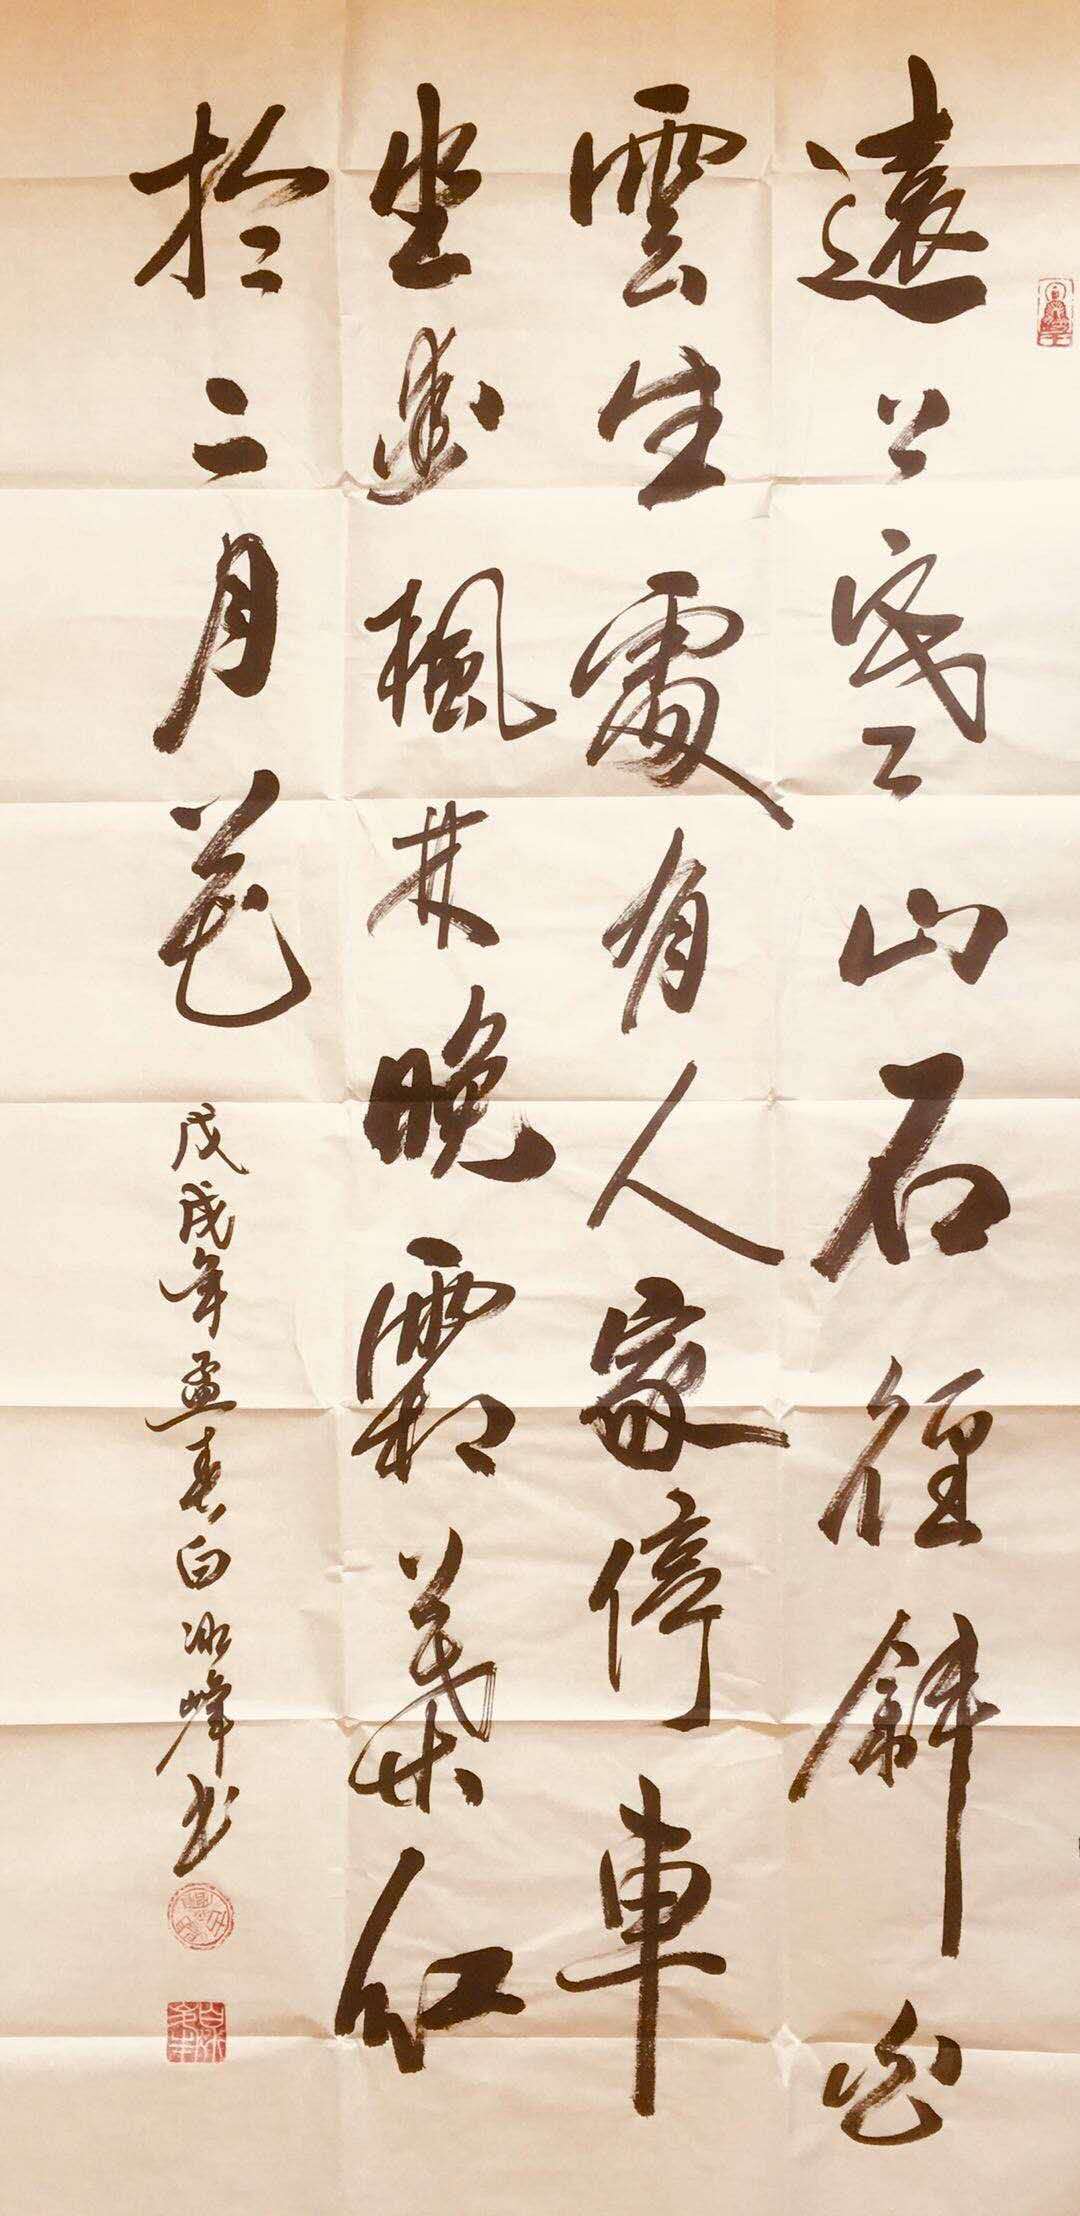 遠上寒山石徑斜白
雲生處有人家停車
坐愛楓林晚霜葉紅
於二月花
戊戌年孟春白冰峰書